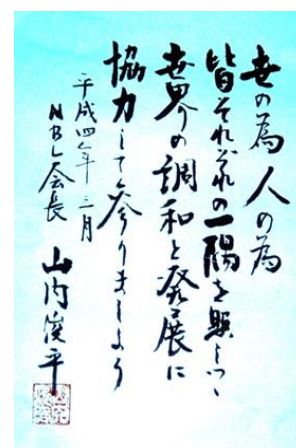 世の為人の為
皆それぞれの一隅を照らしつゝ
世界の調和と発展に
協力して参りましょう
平成四年三月
NBL会長 山内溪平